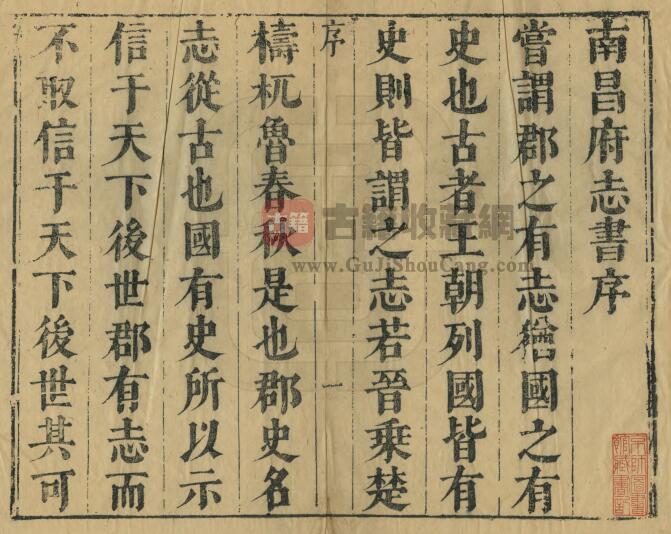 南昌府志書序
嘗謂郡之有志猶國之有
史也古者王朝列國皆有
史則皆謂之志若晉乗楚
序
一
檮杌魯春秋是也郡史名
志從古也國有史所以示
信于天下後世郡有志而
不取信于天下後世其可
古籍
古籍收藏網
www.GuJiShouCang.com